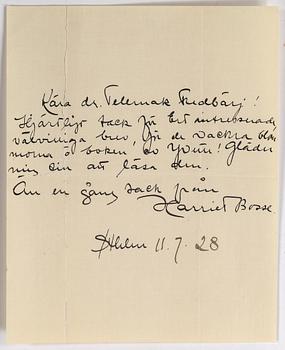 Kära dr. Telemak Fredbärj!
Hjärtligt tack för Ert intresserade
välvilliga brev, för de vackra blom
morna o boken av Yrsa! Gläder
mig åt att läsa den.
Än en gång tack från
Harriet Bosse.
Sthlm 11.7.28